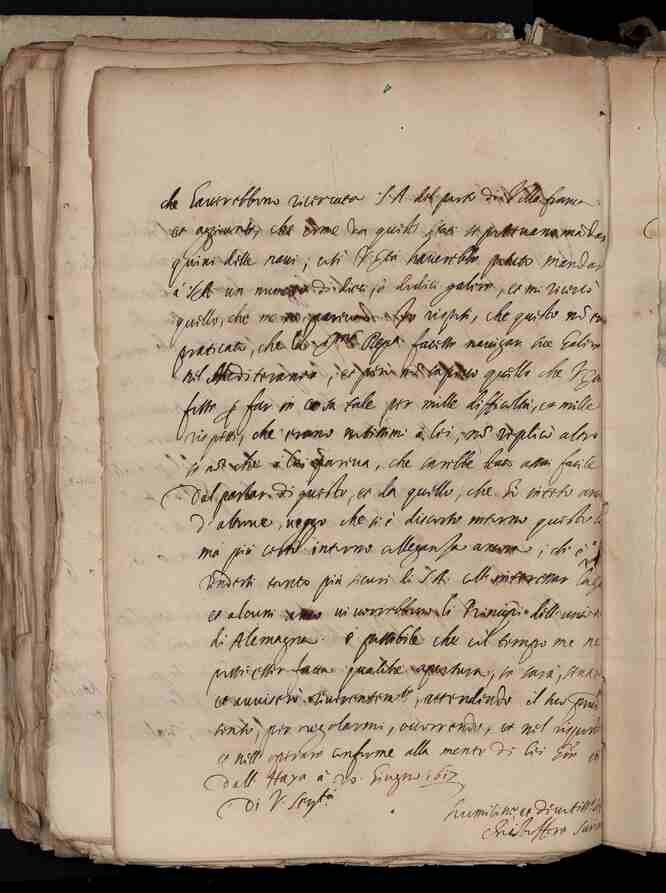 che haverebbono ricercata S.A. del porto di Villa franca
et aggiunto, che come da questi stati si
quini delle navi; così V. Ser.tà haverebbe potuto mandar
à S.A. un numero di dieci, ò dodici galere, et mi ricercò
quello, che me ne pareva. Io risposi, che questo nō era
praticato, che la Ser.ma Rep.ca facesse navigar sue galere
nel Mediterraneo; et però nō sapevo quello che
fatto p far in cosa tale per mille difficoltà, et mille
rispetti, che erano notissimi à lei, nō replicò altro
se nō che à lui pareva, che sarebbe stato assai facile
Dal parlar di questo, et da quello, che hò inteso anco
d'altrove, veggo che si è discorso intorno questo
ma più certo intorno alleganza ancora; chi è
renderli tanto più sicuri di S.A. coll'interessar
et alcuni anco vi vorrebbono li Principi dell'unione
di Alemagna. è possibile che col tempo me ne
possi esser fatta qualche apertura, io sarò,
et avviserò riverentem.te, attendendo il suo
per regolarmi, occorrendo, et nel
et nell'operare conforme alla mente di lei
Dall'Haya à 20 Giugno 1617
Di V. Ser.tà
Humiliss.o et devotiss.o
Christoffero Surian